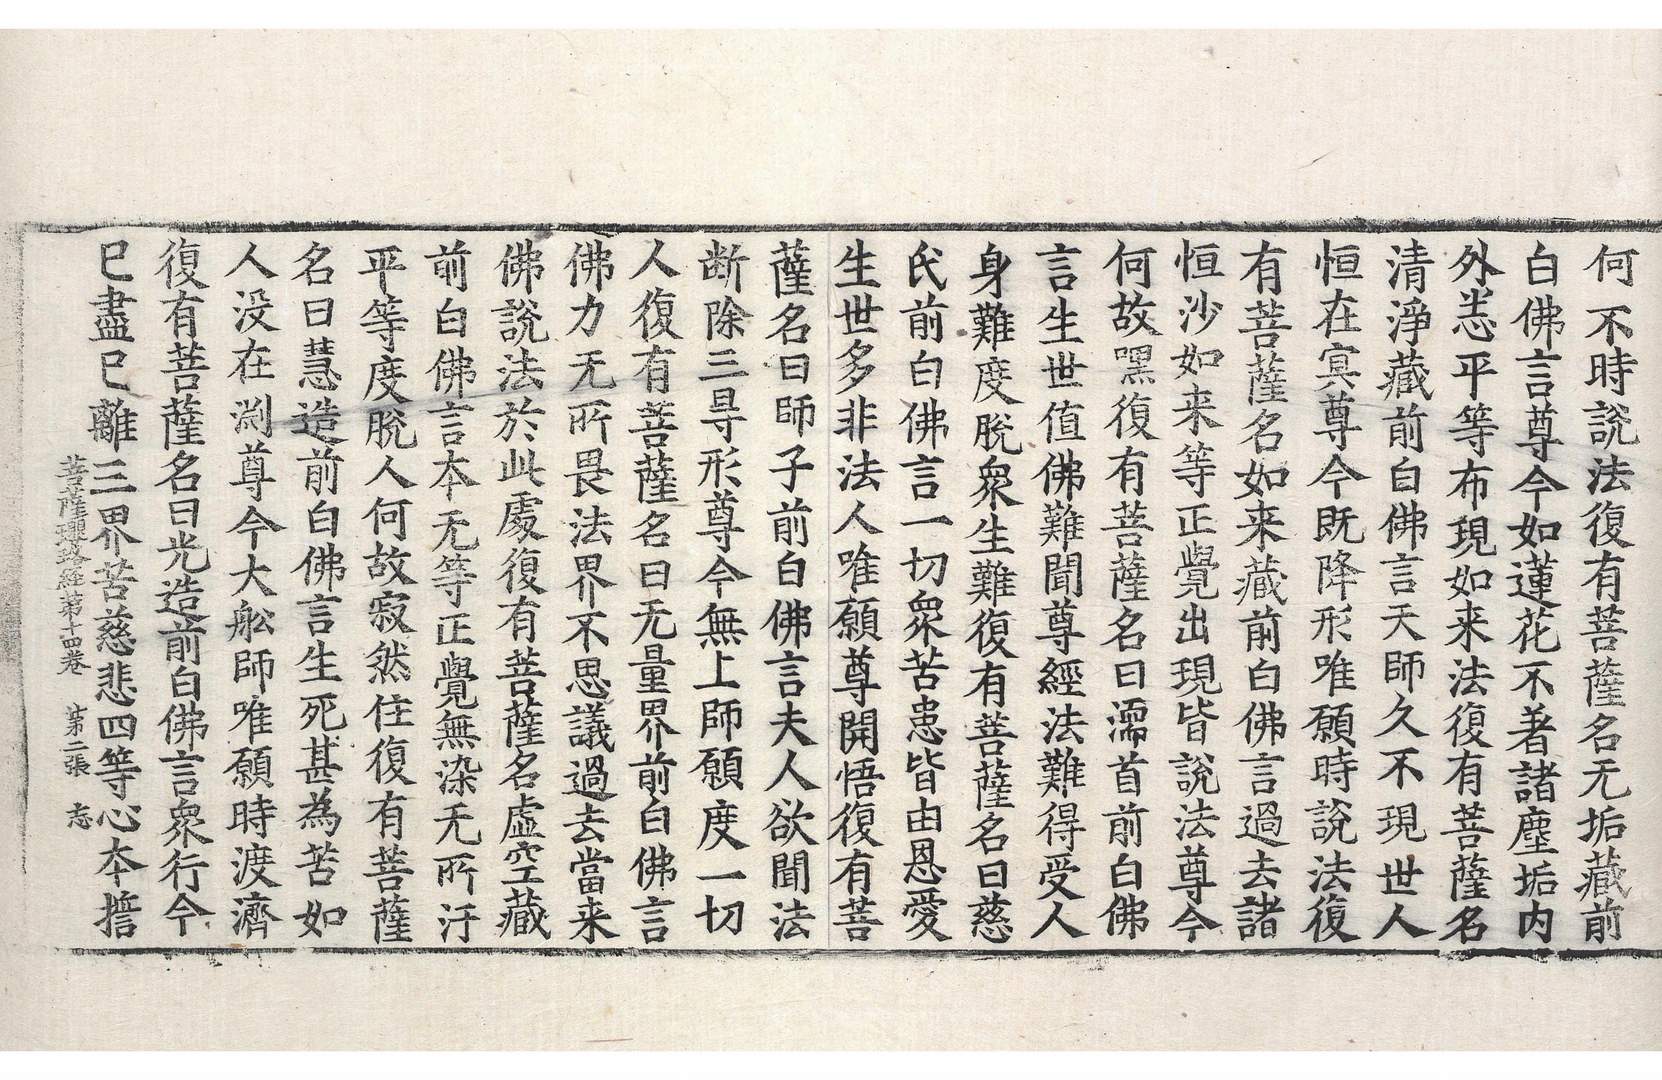 何不時說法復有菩薩名无垢藏前
白佛言尊今如蓮花不著諸塵垢内
外恙平等布現如来法復有菩薩名
清淨藏前白佛言天師久不現世人
恒在冥尊今既降形唯願時說法復
有菩薩名如来藏前白佛言過去諸
恒沙如来等正覺出現皆說法尊今
何故嘿復有菩薩名曰濡首前白佛
言生世值佛難聞尊經法難得受人
身難度脫衆生難復有菩薩名曰慈
氏前白佛言一切衆苦患皆由恩愛
生世多非法人唯願尊開悟復有菩
薩名曰師子前白佛言夫人欲聞法
断除三㝵形尊今無上師願度一切
人復有菩薩名曰无量界前白佛言
佛力无所畏法界不思議過去當来
佛說法於此處復有菩薩名虚空藏
前白佛言本无等正覺無染无所汙
平等度脫人何故寂然住復有菩薩
名曰慧造前白佛言生死甚為苦如
人没在淵尊今大舩師唯願時渡濟
復有菩薩名曰光造前白佛言衆行今
已盡已離三界苦慈悲四等心本擔
菩薩瓔珞經第十四卷 第二張 志